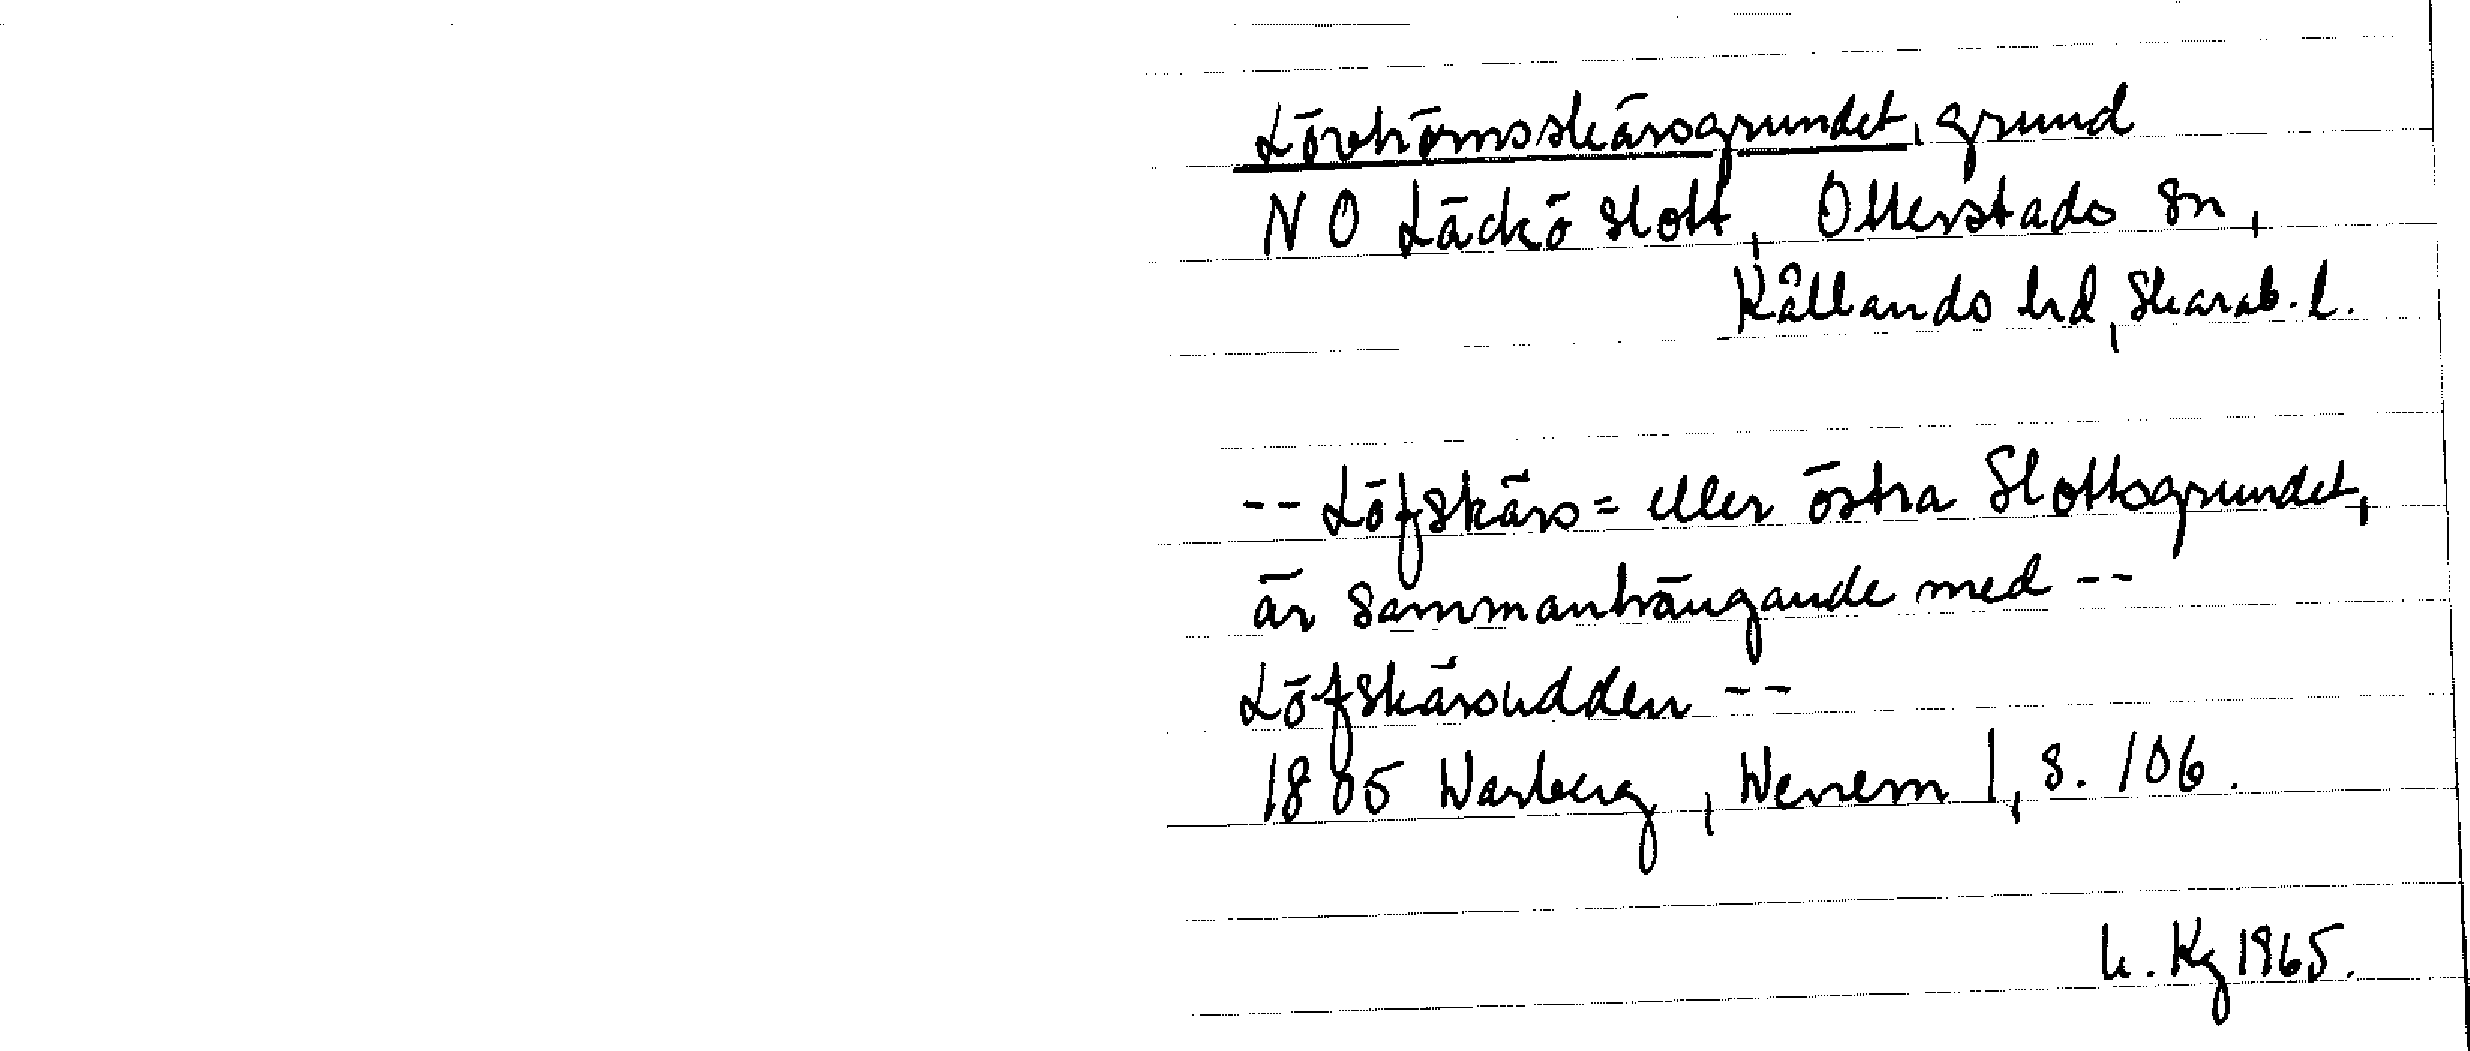 Lövhömsskärsgrundet, grund
NO Läckö slott, Otterstads sn,
Kållands hd, Skarab. l.
-- Löfskärs= eller östra Slottsgrundet,
är sammanhängande med --
Löfskärsudden --
1805 Warberg, Wenern 1, s. 106.
Kg 1965.